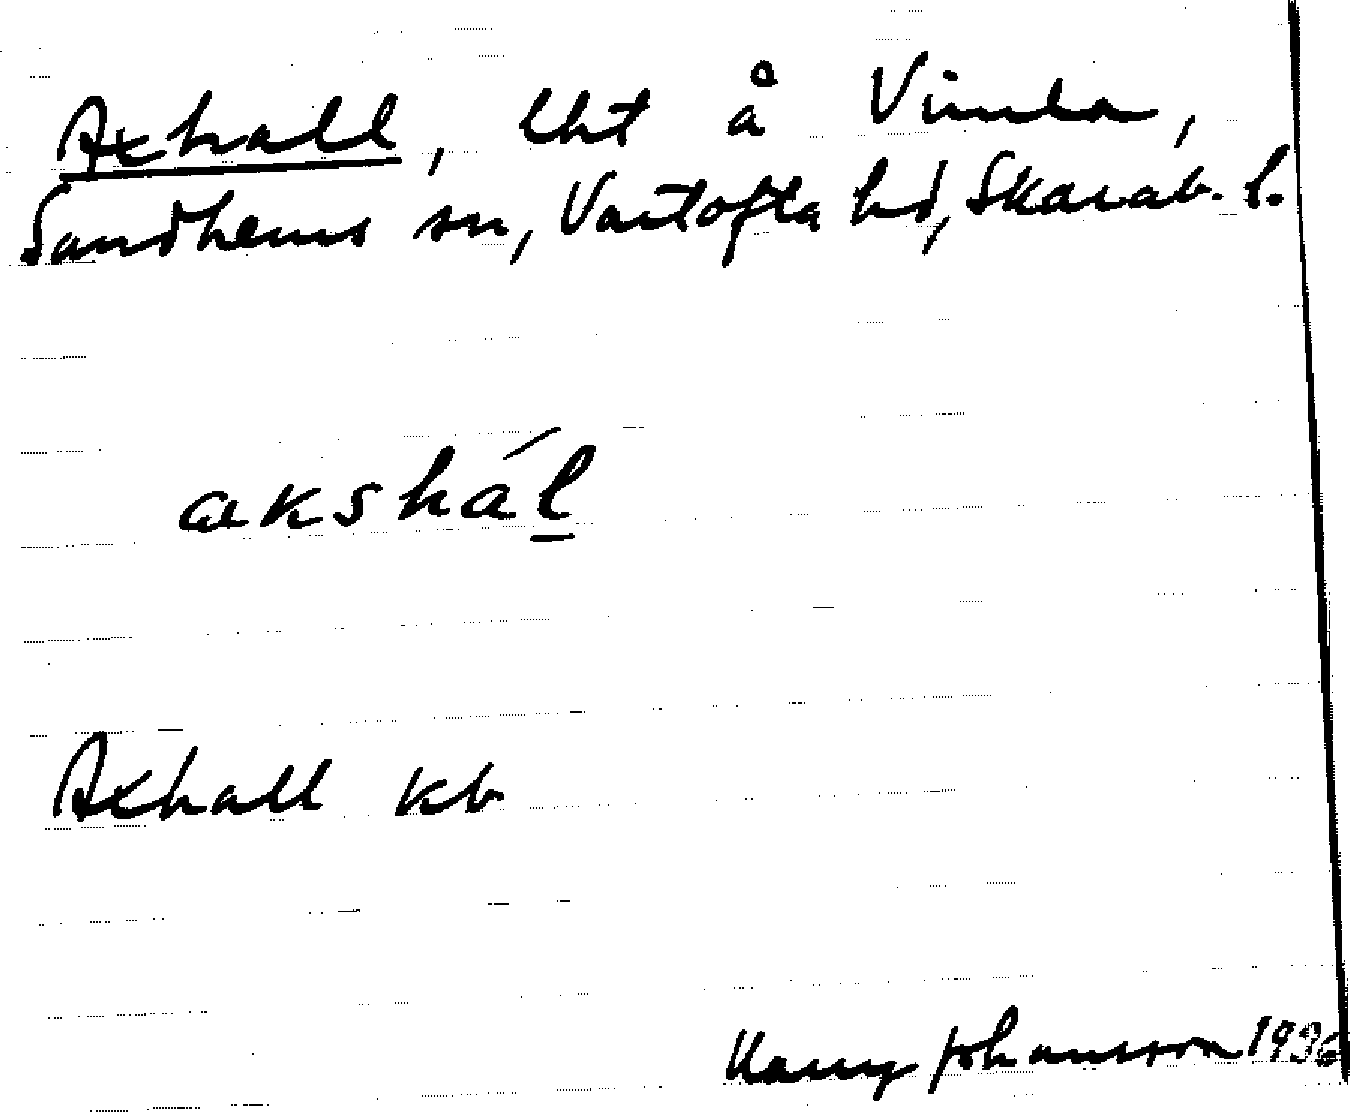 Axhall, lht å Vimla,
Sandhems sn, Vartofta hd, Skarab. l.
akshál
Axhall kb
Harry Johansson 1936